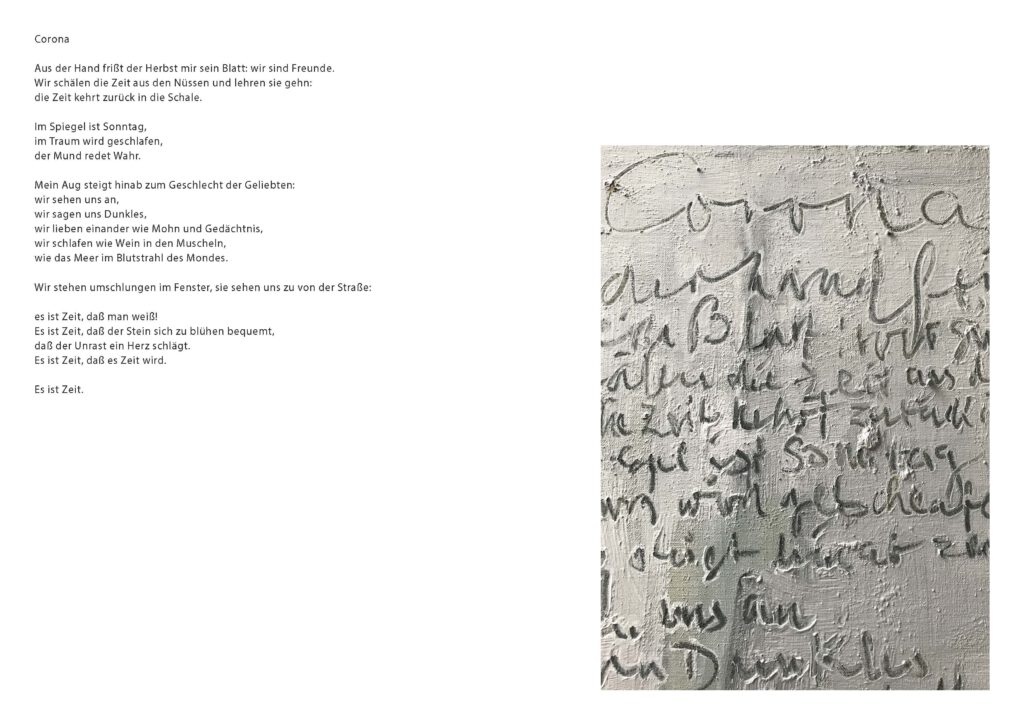 Corona
Aus der Hand frißt der Herbst mir sein Blatt: wir sind Freunde.
Wir schälen die Zeit aus den Nüssen und lehren sie gehn:
die Zeit kehrt zurück in die Schale.
Im Spiegel ist Sonntag,
im Traum wird geschlafen,
der Mund redet Wahr.
Mein Aug steigt hinab zum Geschlecht der Geliebten:
wir sehen uns an,
wir sagen uns Dunkles,
wir lieben einander wie Mohn und Gedächtnis,
wir schlafen wie Wein in den Muscheln,
wie das Meer im Blutstrahl des Mondes.
Wir stehen umschlungen im Fenster, sie sehen uns zu von der Straße:
es ist Zeit, daß man weiß!
Es ist Zeit, daß der Stein sich zu blühen bequemt,
daß der Unrast ein Herz schlägt.
Es ist Zeit, daß es Zeit wird.
Es ist Zeit.
Corona
der Hand
Blatt: wir
die Zeit aus
Zeit kehrt zurück
ist Sonntag
wird
hinab
uns an
Dunkles